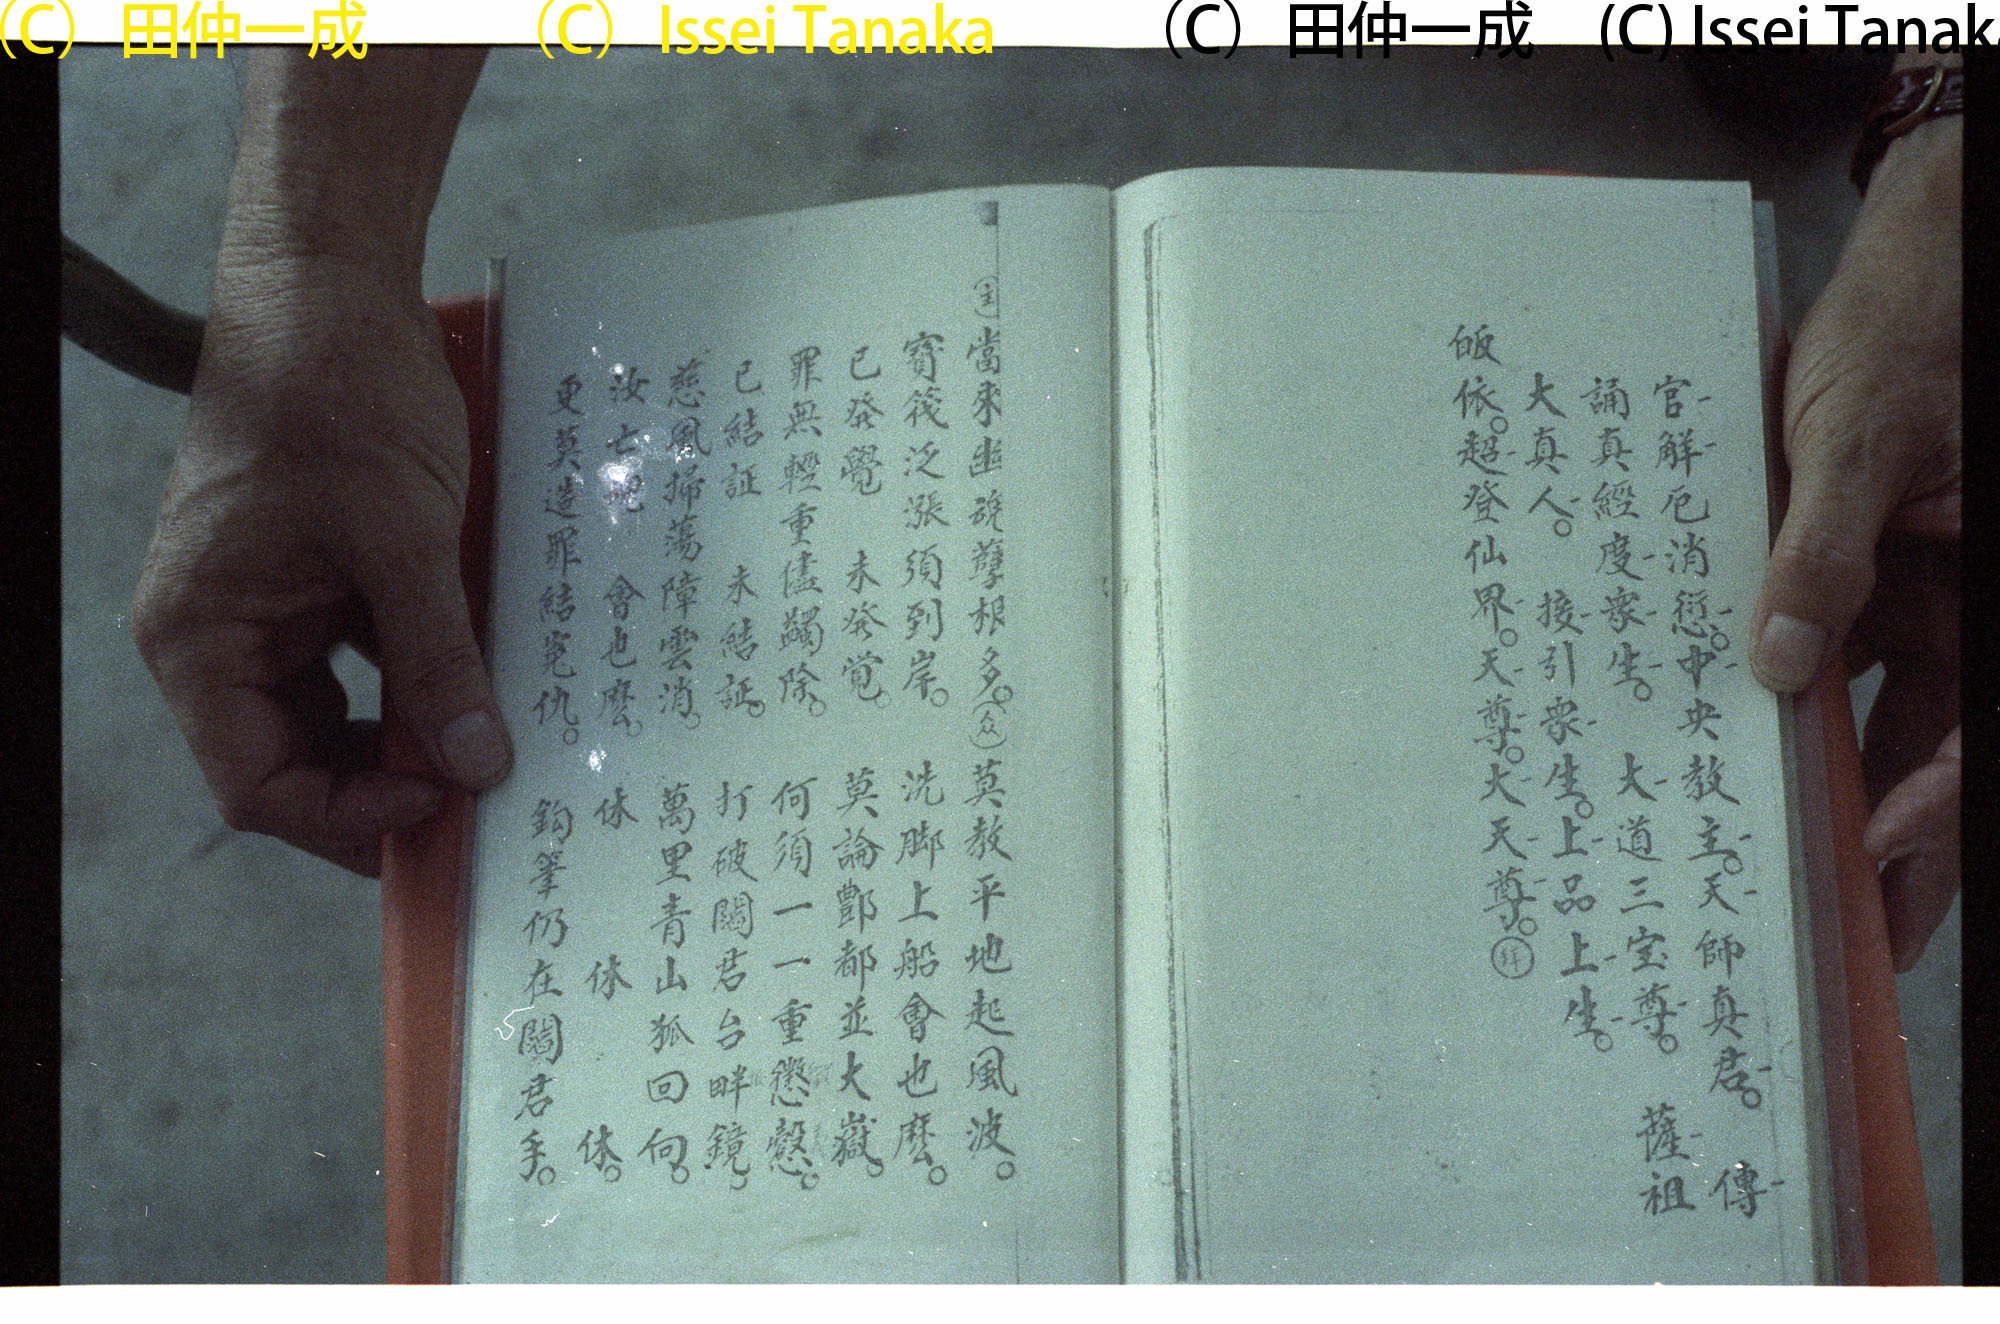 (C) 田仲一成 (C) Issei Tanaka (C) 田仲一成 (C) Issei Tanak
官解厄消愆。中央教主。天師真君。傳
誦真經度衆生。大道三宝尊。薩祖
大真人。接引衆生。上品上生。
皈依。超登仙界。天尊。大天尊。
主 當來幽魂孽根多。众 莫教平地起風波。
寶筏泛漲須到岸。洗脚上船會也麽。
已發覺 未發覚。莫論酆都並大嶽。
罪無輕重儘蠲除。何須一一重懲慤。
已結証 未結証。打破閻君台畔鏡。
慈風掃蕩障雲消。萬里青山狐回向。
汝亡 會也麽。休 休 休。
更莫造罪結冤仇。鈎筆仍在閻君手。